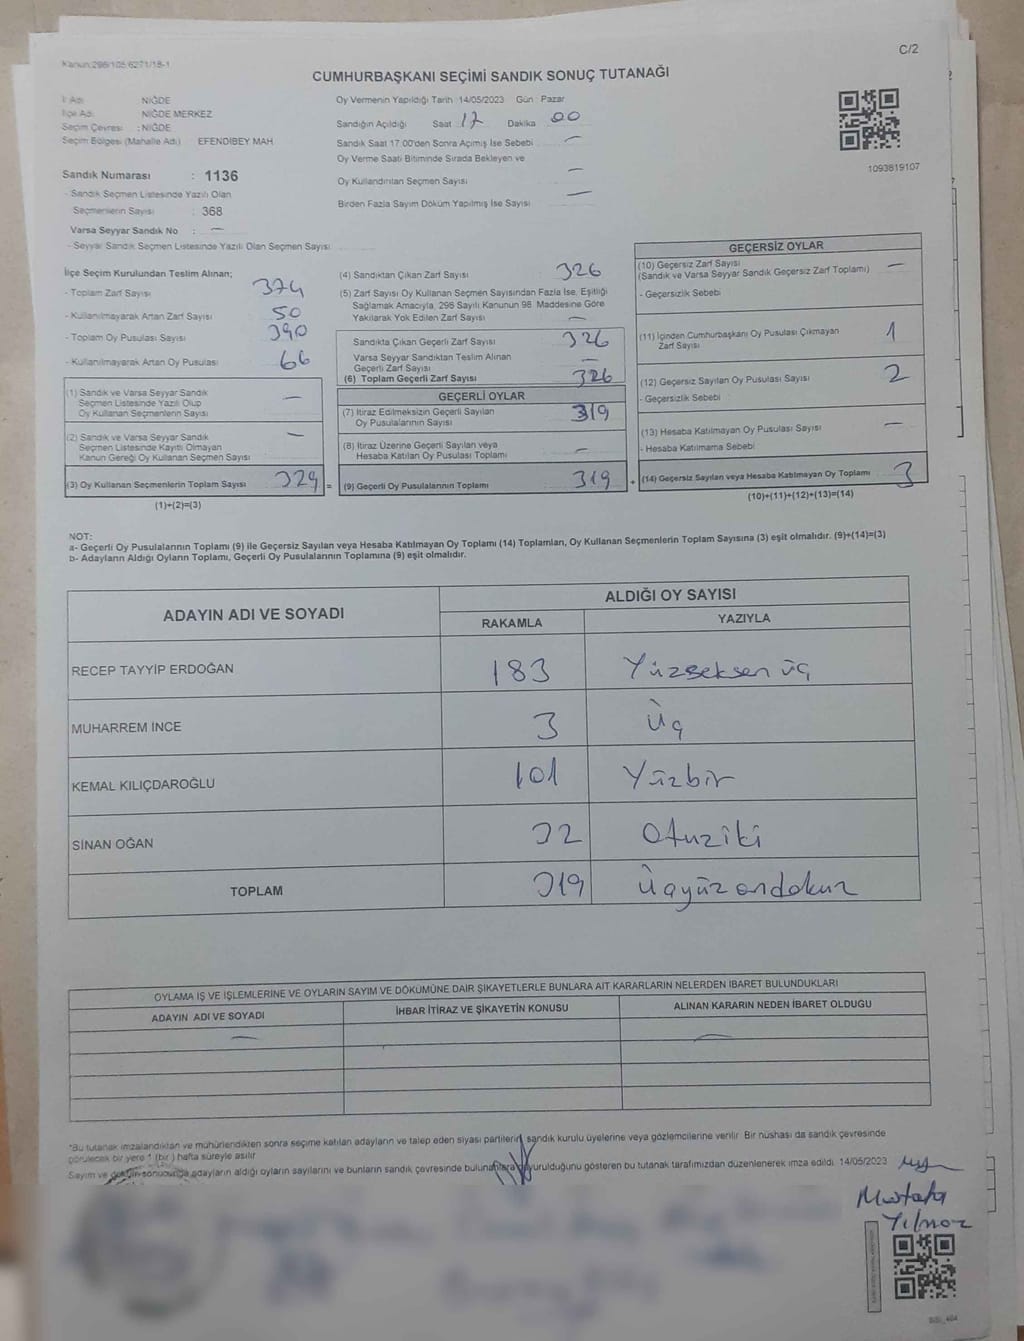 C/2
Kanun:298/105.6271/18-1
CUMHURBAŞKANI SEÇİMİ SANDIK SONUÇ TUTANAĞI
İl Adı NİĞDE
İlçe Adı NİĞDE MERKEZ
Seçim Çevresi : NİĞDE
Seçim Bölgesi (Mahalle Adı) EFENDİBEY MAH
Sandık Numarası : 1136
- Sandık Seçmen Listesinde Yazılı Olan
Seçmenlerin Sayısı : 368
Varsa Seyyar Sandık No : —
- Seyyar Sandık Seçmen Listesinde Yazılı Olan Seçmen Sayısı
Oy Vermenin Yapıldığı Tarih 14/05/2023 Gün : Pazar
Sandığın Açıldığı Saat 17 Dakika 00
Sandık Saat 17:00'den Sonra Açılmış İse Sebebi —
Oy Verme Saati Bitiminde Sırada Bekleyen ve
Oy Kullandırılan Seçmen Sayısı —
Birden Fazla Sayım Döküm Yapılmış İse Sayısı —
1093819107
İlçe Seçim Kurulundan Teslim Alınan;
- Toplam Zarf Sayısı 374
- Kullanılmayarak Artan Zarf Sayısı 50
- Toplam Oy Pusulası Sayısı 390
- Kullanılmayarak Artan Oy Pusulası 66
(1) Sandık ve Varsa Seyyar Sandık
Seçmen Listesinde Yazılı Olup
Oy Kullanan Seçmenlerin Sayısı —
(2) Sandık ve Varsa Seyyar Sandık
Seçmen Listesinde Kayıtlı Olmayan
Kanun Gereği Oy Kullanan Seçmen Sayısı —
(3) Oy Kullanan Seçmenlerin Toplam Sayısı 324 =
(1)+(2)=(3)
(4) Sandıktan Çıkan Zarf Sayısı 326
(5) Zarf Sayısı Oy Kullanan Seçmen Sayısından Fazla İse, Eşitliği
Sağlamak Amacıyla, 298 Sayılı Kanunun 98. Maddesine Göre
Yakılarak Yok Edilen Zarf Sayısı —
Sandıkta Çıkan Geçerli Zarf Sayısı 326
Varsa Seyyar Sandıktan Teslim Alınan
Geçerli Zarf Sayısı —
(6) Toplam Geçerli Zarf Sayısı 326
GEÇERLİ OYLAR
(7) İtiraz Edilmeksizin Geçerli Sayılan
Oy Pusulalarının Sayısı 319
(8) İtiraz Üzerine Geçerli Sayılan veya
Hesaba Katılan Oy Pusulası Toplamı —
(9) Geçerli Oy Pusulalarının Toplamı 319 +
GEÇERSİZ OYLAR
(10) Geçersiz Zarf Sayısı —
(Sandık ve Varsa Seyyar Sandık Geçersiz Zarf Toplamı)
- Geçersizlik Sebebi
(11) İçinden Cumhurbaşkanı Oy Pusulası Çıkmayan
Zarf Sayısı 1
(12) Geçersiz Sayılan Oy Pusulası Sayısı 2
- Geçersizlik Sebebi
(13) Hesaba Katılmayan Oy Pusulası Sayısı —
- Hesaba Katılmama Sebebi
(14) Geçersiz Sayılan veya Hesaba Katılmayan Oy Toplamı 3
(10)+(11)+(12)+(13)=(14)
NOT:
a- Geçerli Oy Pusulalarının Toplamı (9) ile Geçersiz Sayılan veya Hesaba Katılmayan Oy Toplamı (14) Toplamları, Oy Kullanan Seçmenlerin Toplam Sayısına (3) eşit olmalıdır. (9)+(14)=(3)
b- Adayların Aldığı Oyların Toplamı, Geçerli Oy Pusulalarının Toplamına (9) eşit olmalıdır.
ADAYIN ADI VE SOYADI ALDIĞI OY SAYISI
RAKAMLA YAZIYLA
RECEP TAYYİP ERDOĞAN 183 Yüzseksen üç
MUHARREM İNCE 3 Üç
KEMAL KILIÇDAROĞLU 101 Yüzbir
SİNAN OĞAN 32 Otuziki
TOPLAM 319 Üçyüzondokuz
OYLAMA İŞ VE İŞLEMLERİNE VE OYLARIN SAYIM VE DÖKÜMÜNE DAİR ŞİKAYETLERLE BUNLARA AİT KARARLARIN NELERDEN İBARET BULUNDUKLARI
ADAYIN ADI VE SOYADI İHBAR İTİRAZ VE ŞİKAYETİN KONUSU ALINAN KARARIN NEDEN İBARET OLDUĞU
*Bu tutanak imzalandıktan ve mühürlendikten sonra seçime katılan adayların ve talep eden siyasi partilerin sandık kurulu üyelerine veya gözlemcilerine verilir. Bir nüshası da sandık çevresinde
görülecek bir yere 1 (bir) hafta süreyle asılır.
Sayım ve döküm sonucunda adayların aldığı oyların sayılarını ve bunların sandık çevresinde bulunanlara duyurulduğunu gösteren bu tutanak tarafımızdan düzenlenerek imza edildi. 14/05/2023
Mustafa
Yılmaz